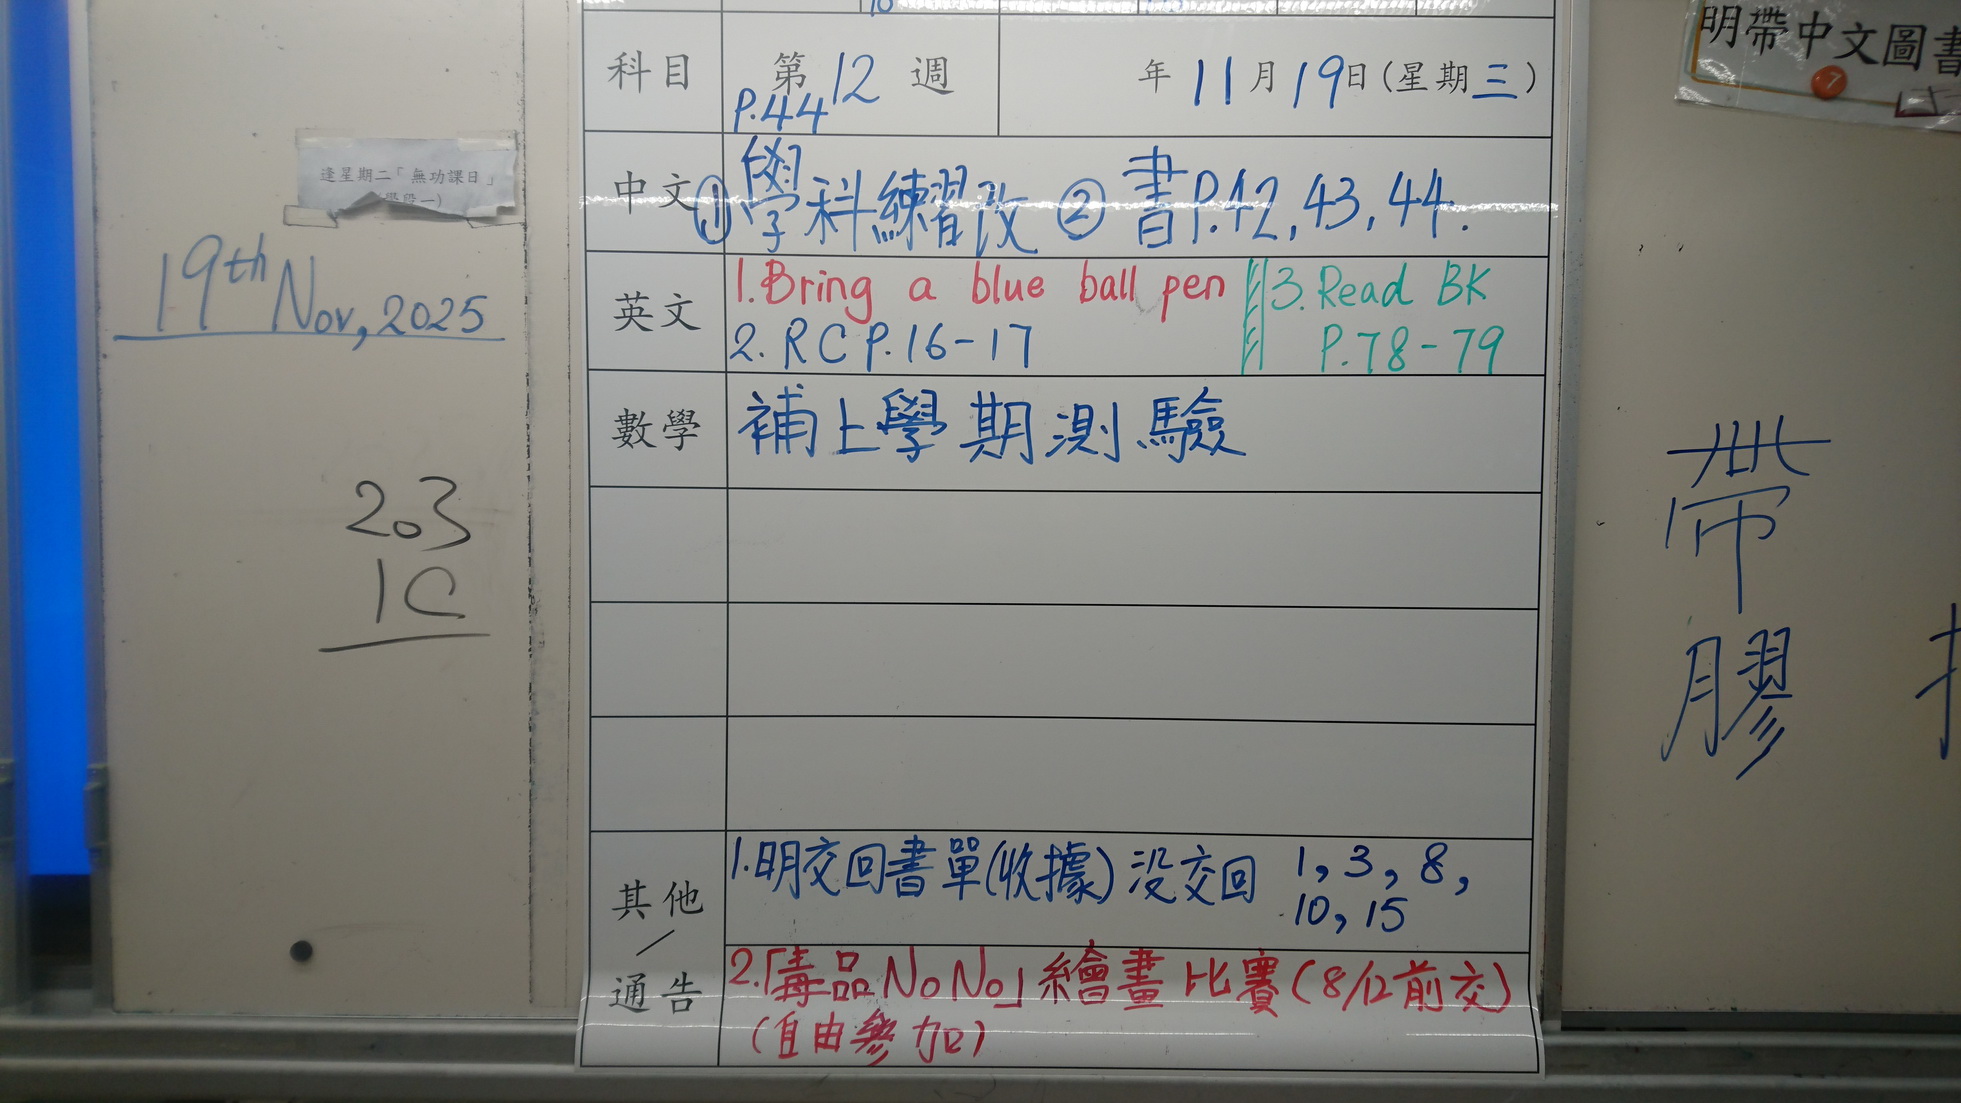 科目 第12週 年11月19日(星期三)
P.44
中文 ①學科練習改 ②書P.42,43,44.
英文 1.Bring a blue ball pen 3.Read BK
2. RC P.16-17 P.78-79
數學 補上學期測驗
其他／通告 1.明交回書單(收據)没交回 1,3,8,
10,15
2.「毒品NoNo」繪畫比賽(8/12前交)
(自由參加)
逢星期二「無功課日」
19th Nov, 2025
203
1C
明帶中文圖書
帶
膠